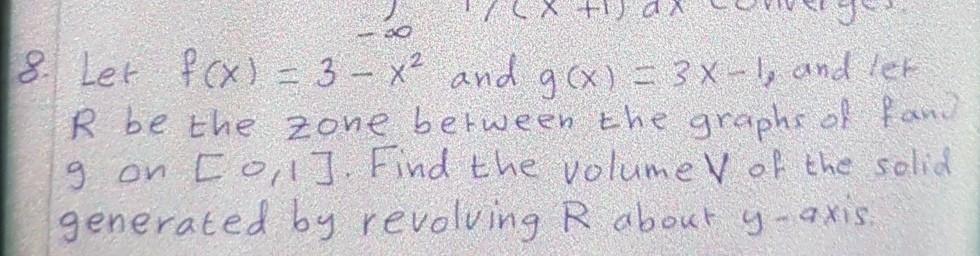 -∞ 1/(x+1) dx converges.
8. Let f(x) = 3 - x² and g(x) = 3x - 1, and let
R be the zone between the graphs of f and
g on [0,1]. Find the volume V of the solid
generated by revolving R about y-axis.